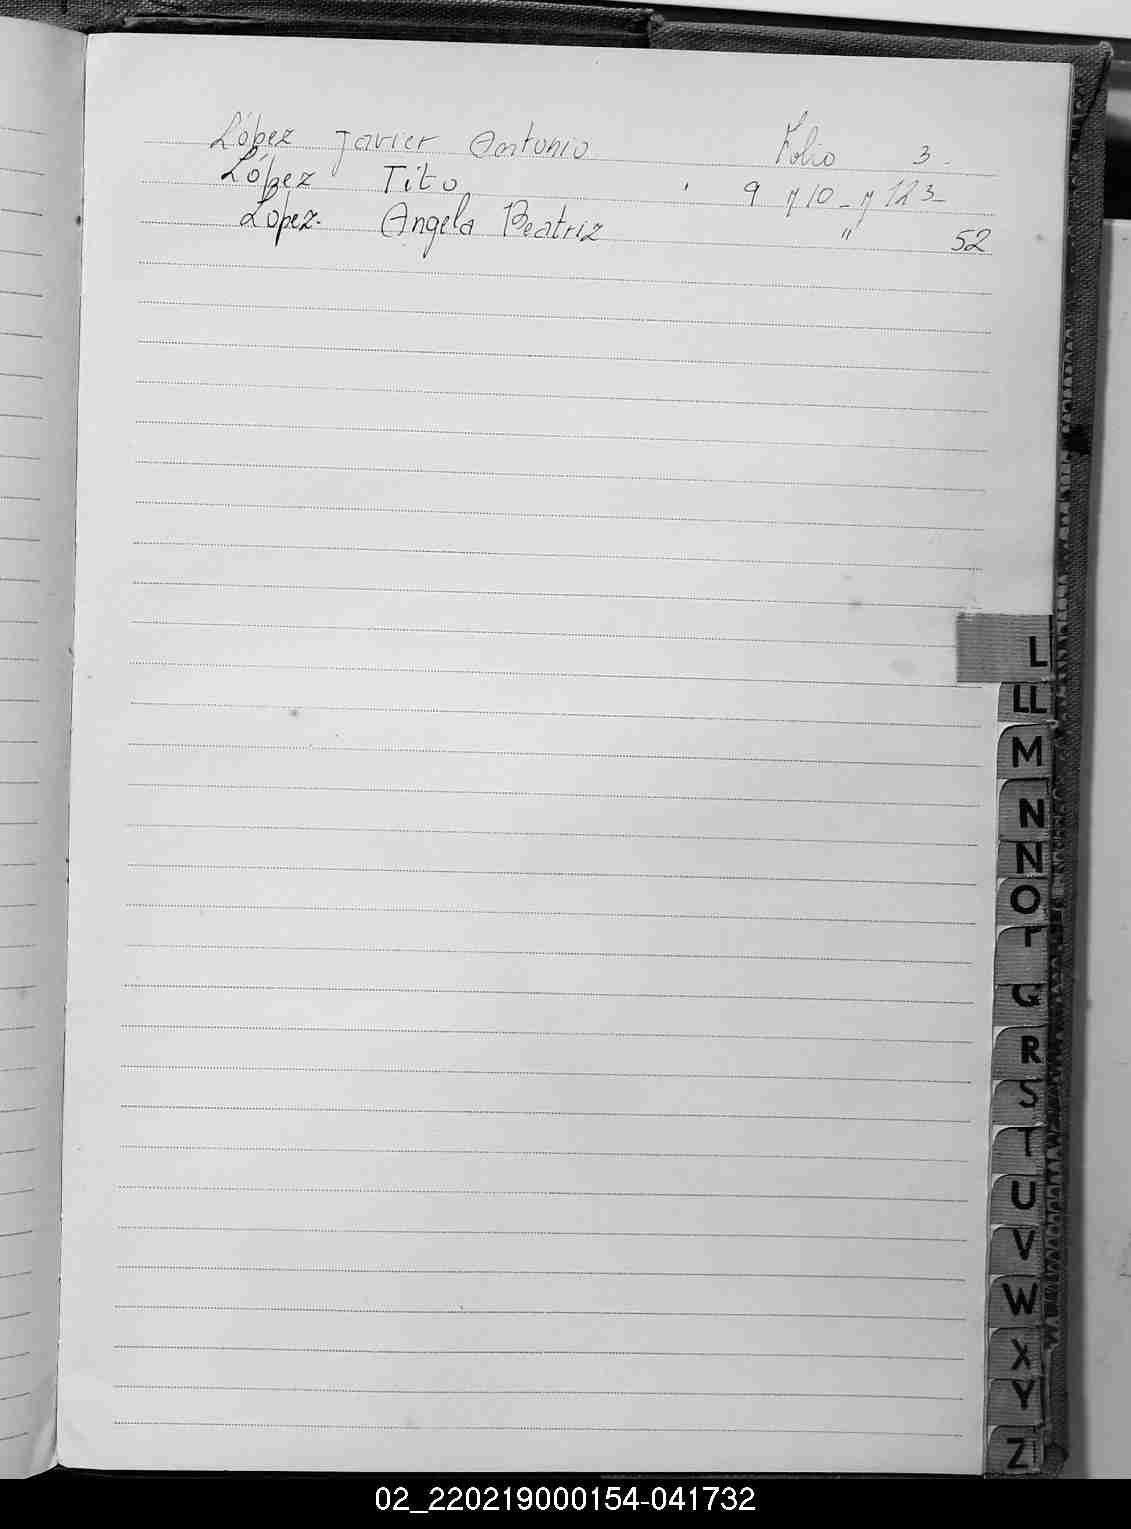 López Javier Antonio Folio 3.
López Tito ' 9 y 10 - y 123-
López. Angela Beatriz " 52
L
LL
M
N
Ñ
O
Q
R
S
T
U
V
W
X
Y
Z
02_220219000154-041732